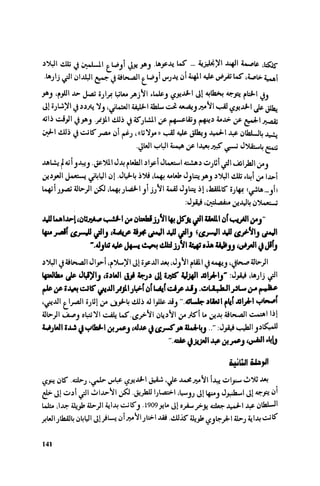 كلكتا، عاصمة الهند الإنجليزية ... كما يدعوها. وهو يولي أوضاع المسلمين في تلك البلاد
أهمية خاصة، كما تفرض عليه المهنة أن يدرس أوضاع الصحافة في جميع البلدان التي زارها.
وفي الختام يتوجه بخطابه إلى الخديوي وعلماء الأزهر معاتبا بمرارة تصل حد اللوم، وهو
يطلق على الخديوي لقب الأمير ويضعه تحت سلطة الخليفة العثماني، ولا يتردد في الإشارة إلى
تقصير الجميع عن خدمة دينهم وتقاعسهم عن المشاركة في ذلك المؤتمر. وهو في الوقت ذاته
يشيد بالسلطان عبد الحميد ويطلق عليه لقب «مولانا»، رغم أن مصر كانت في ذلك الحين
تتمتع باستقلال نسبي كبير بعيدا عن هيمنة الباب العالي.
ومن الطرائف التي أثارت دهشته استعمال أعواد الطعام بدل الملاعق. ويبدو أنه لم يشاهد
أحدا من أبناء تلك البلاد وهو يتناول طعامه بهما، فلاذ بالخيال. إن الياباني يستعمل العودين
(أو..هاشي) بمهارة كالملقط، إذ يتناول لقمة الأرز أو الخضار بهما، لكن الرحالة تصور أنهما
تستعملان باليدين منفصلتين، فيقول:
"ومن الغريب أن الملعقة التي يؤكل بها الأرز قطعتان من الخشب صغيرتان، إحداهما لليد
اليمنى والأخرى لليد اليسرى؛ والتي لليد اليمنى مجوفة عريضة، والتي لليسرى أقصر منها
وأقل في العرض، ووظيفة هذه تهيئة الأرز لتلك بحيث يسهل عليه تناوله."
الرحالة صحافي، ويهمه في المقام الأول، بعد الدعوة إلى الإسلام، أحوال الصحافة في البلاد
التي زارها، فيقول: "والجرائد الهزلية كثيرة إلى درجة فوق العادة، والإقبال على مطالعتها
عظيم من سائر الطبقات. وقد عرفت أيضا أن أخبار المؤتمر الديني كانت بعيدة عن علم
أصحاب الجرائد أيام انعقاد جلساته." وقد عللوا له ذلك بالخوف من إثارة الصراع الديني،
إذا اهتمت الصحافة بدين ما أكثر من الأديان الأخرى. كما يلفت الانتباه وصف الرحالة
للميكادو الطيب فيقول: "... وبالجملة هو كسرى في عدله، وعمر بن الخطاب في شدة العارضة
وإباء النفس، وعمر بن عبد العزيز في عفته."
الرحلة الثانية
بعد ثلاث سنوات يبدأ الأمير محمد علي، شقيق الخديوي عباس حلمي، رحلته. كان ينوي
أن يتوجه إلى اسطنبول ومنها إلى روسيا، اختصارا للطريق. لكن الأحداث التي أدت إلى خلع
السلطان عبد الحميد جعلته يؤخر سفره إلى مايو 1909. وكانت بداية الرحلة طويلة جدا، مثلما
كانت بداية رحلة الجرجاوي طويلة كذلك. فقد اختار الأمير أن يسافر إلى اليابان بالقطار العابر
141